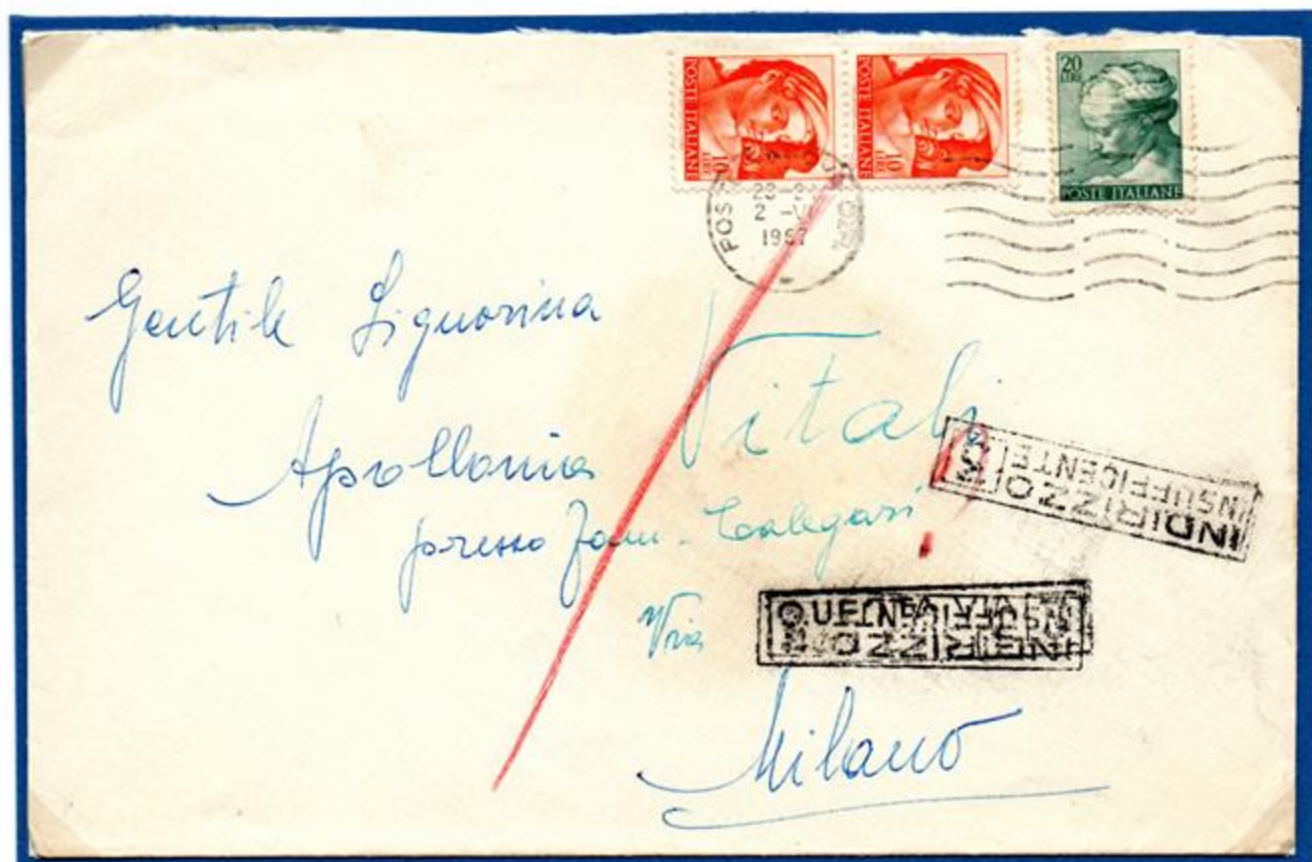 POSTE ITALIANE
10 LIRE
POSTE ITALIANE
10 LIRE
20 LIRE
POSTE ITALIANE
POS
23-2
2 -V
1967
Gentile Signorina
Apollonia Vitali
presso Fam. Calegari
Via
Milano
INDIRIZZO
INSUFFICENTE